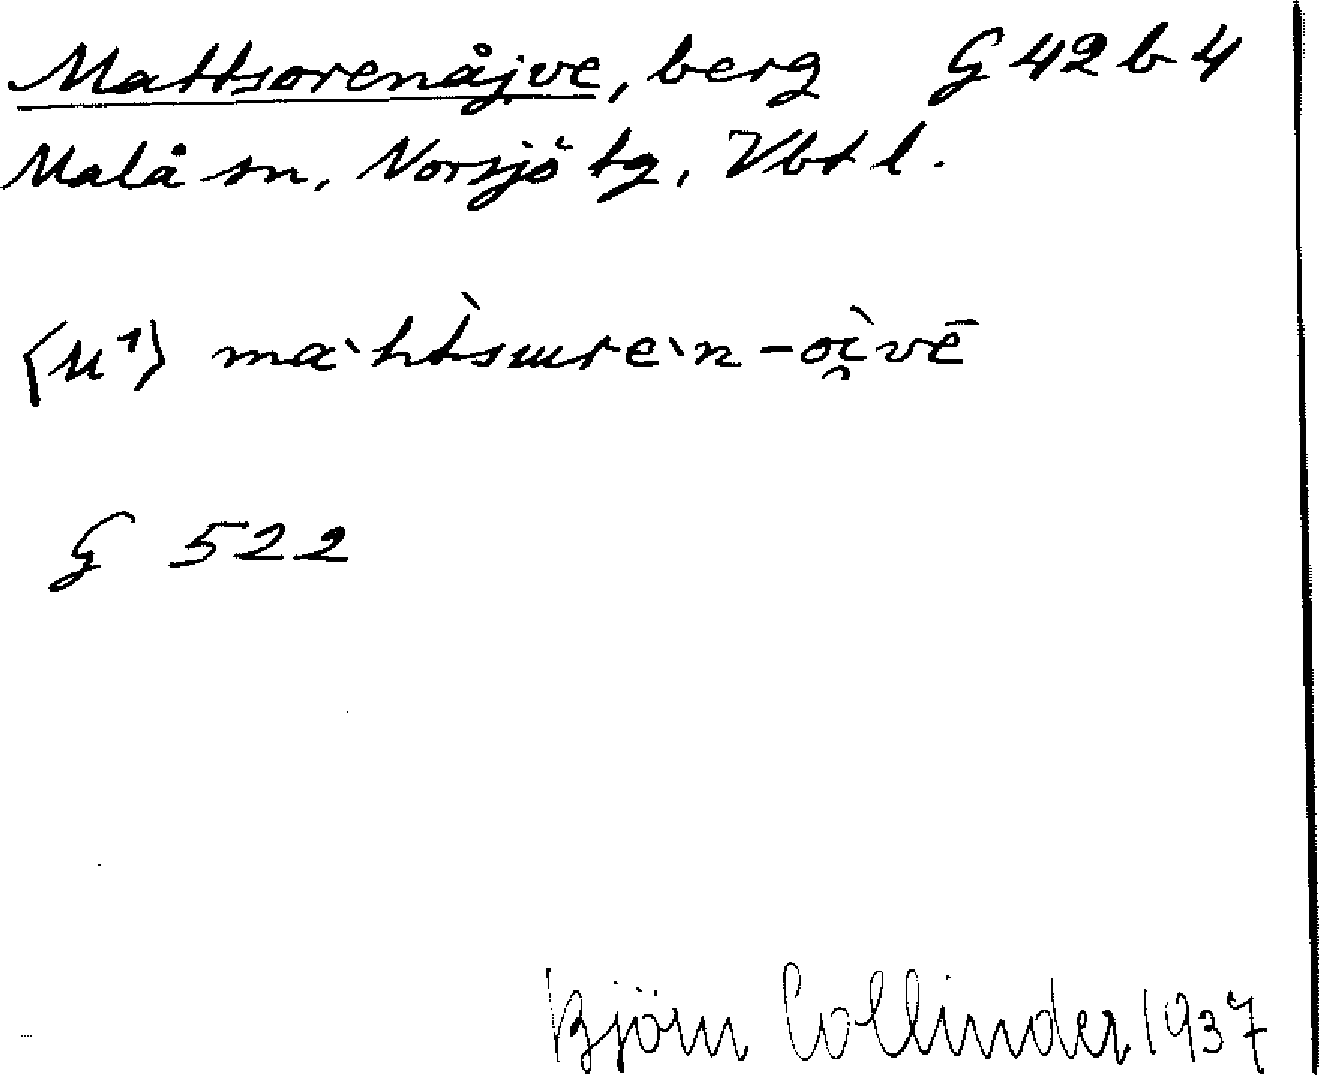 Mattsorenåjve, berg G 42 b 4
Malå sn, Norsjö tg, Vbt l.
⟨M¹⟩ ma`ht̀sɯre`n-oì̯vē
G 522
Björn Collinder 1937